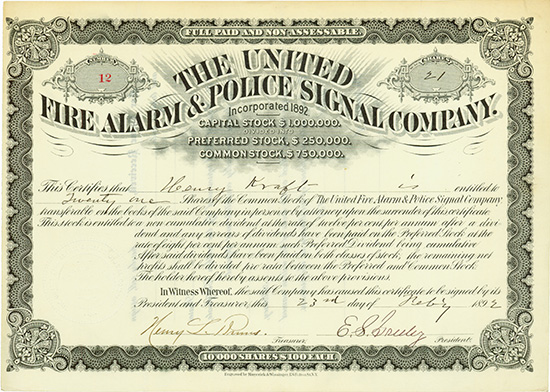 FULL PAID AND NON ASSESSABLE.
COMMON
12
COMMON
21
THE UNITED
FIRE ALARM & POLICE SIGNAL COMPANY.
Incorporated 1892.
CAPITAL STOCK $ 1,000,000.
DIVIDED INTO
PREFERRED STOCK, $ 250,000.
COMMON STOCK, $ 750,000.
This Certifies that Henry Kraft is entitled to
Twenty one Shares of the Common Stock of The United Fire, Alarm & Police Signal Company
transferable on the books of the said Company in person or by attorney upon the surrender of this certificate.
This stock is entitled to a non cumulative dividend at the rate of twelve per cent per annum after a divi
dend and any arrears of dividends have been paid on the Preferred Stock at the
rate of eight per cent per annum, such Preferred Dividend being cumulative.
After said dividends have been paid on both classes of stock, the remaining net
profits shall be divided pro rata between the Preferred and Common Stock.
The holder hereof hereby assents to the above provisions.
In Witness Whereof, the said Company has caused this certificate to be signed by its
President and Treasurer this 23rd day of Feby 1892
Henry L.
Treasurer.
E. S. Greeley
President.
10,000 SHARES $ 100 EACH.